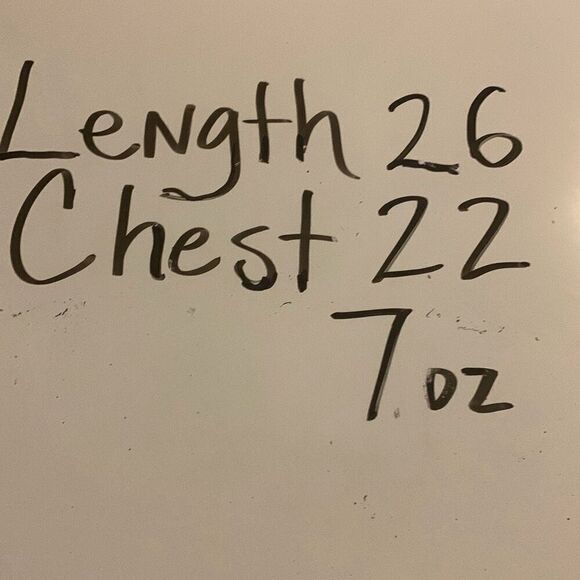 Length 26
Chest 22
7 oz